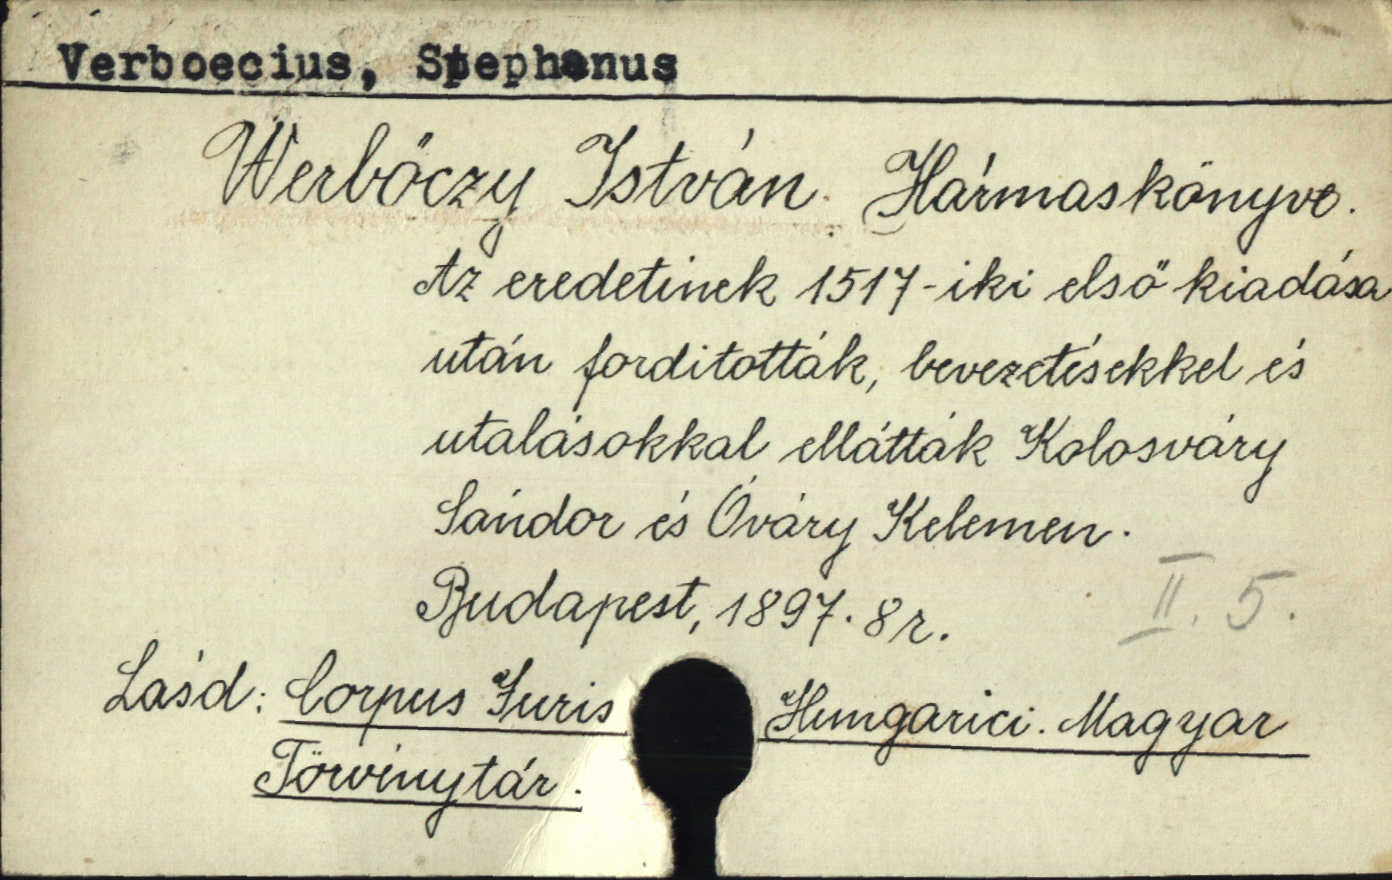 Verboecius, Stephanus
Werbőczy István Hármaskönyve.
Az eredetinek 1517-iki első kiadása
után forditották, bevezetésekkel és
utalásokkal ellátták Kolosváry
Sándor és Óváry Kelemen.
Budapest, 1897. 8r.
II. 5.
Lásd: Corpus Juris Hungarici. Magyar
Törvénytár.